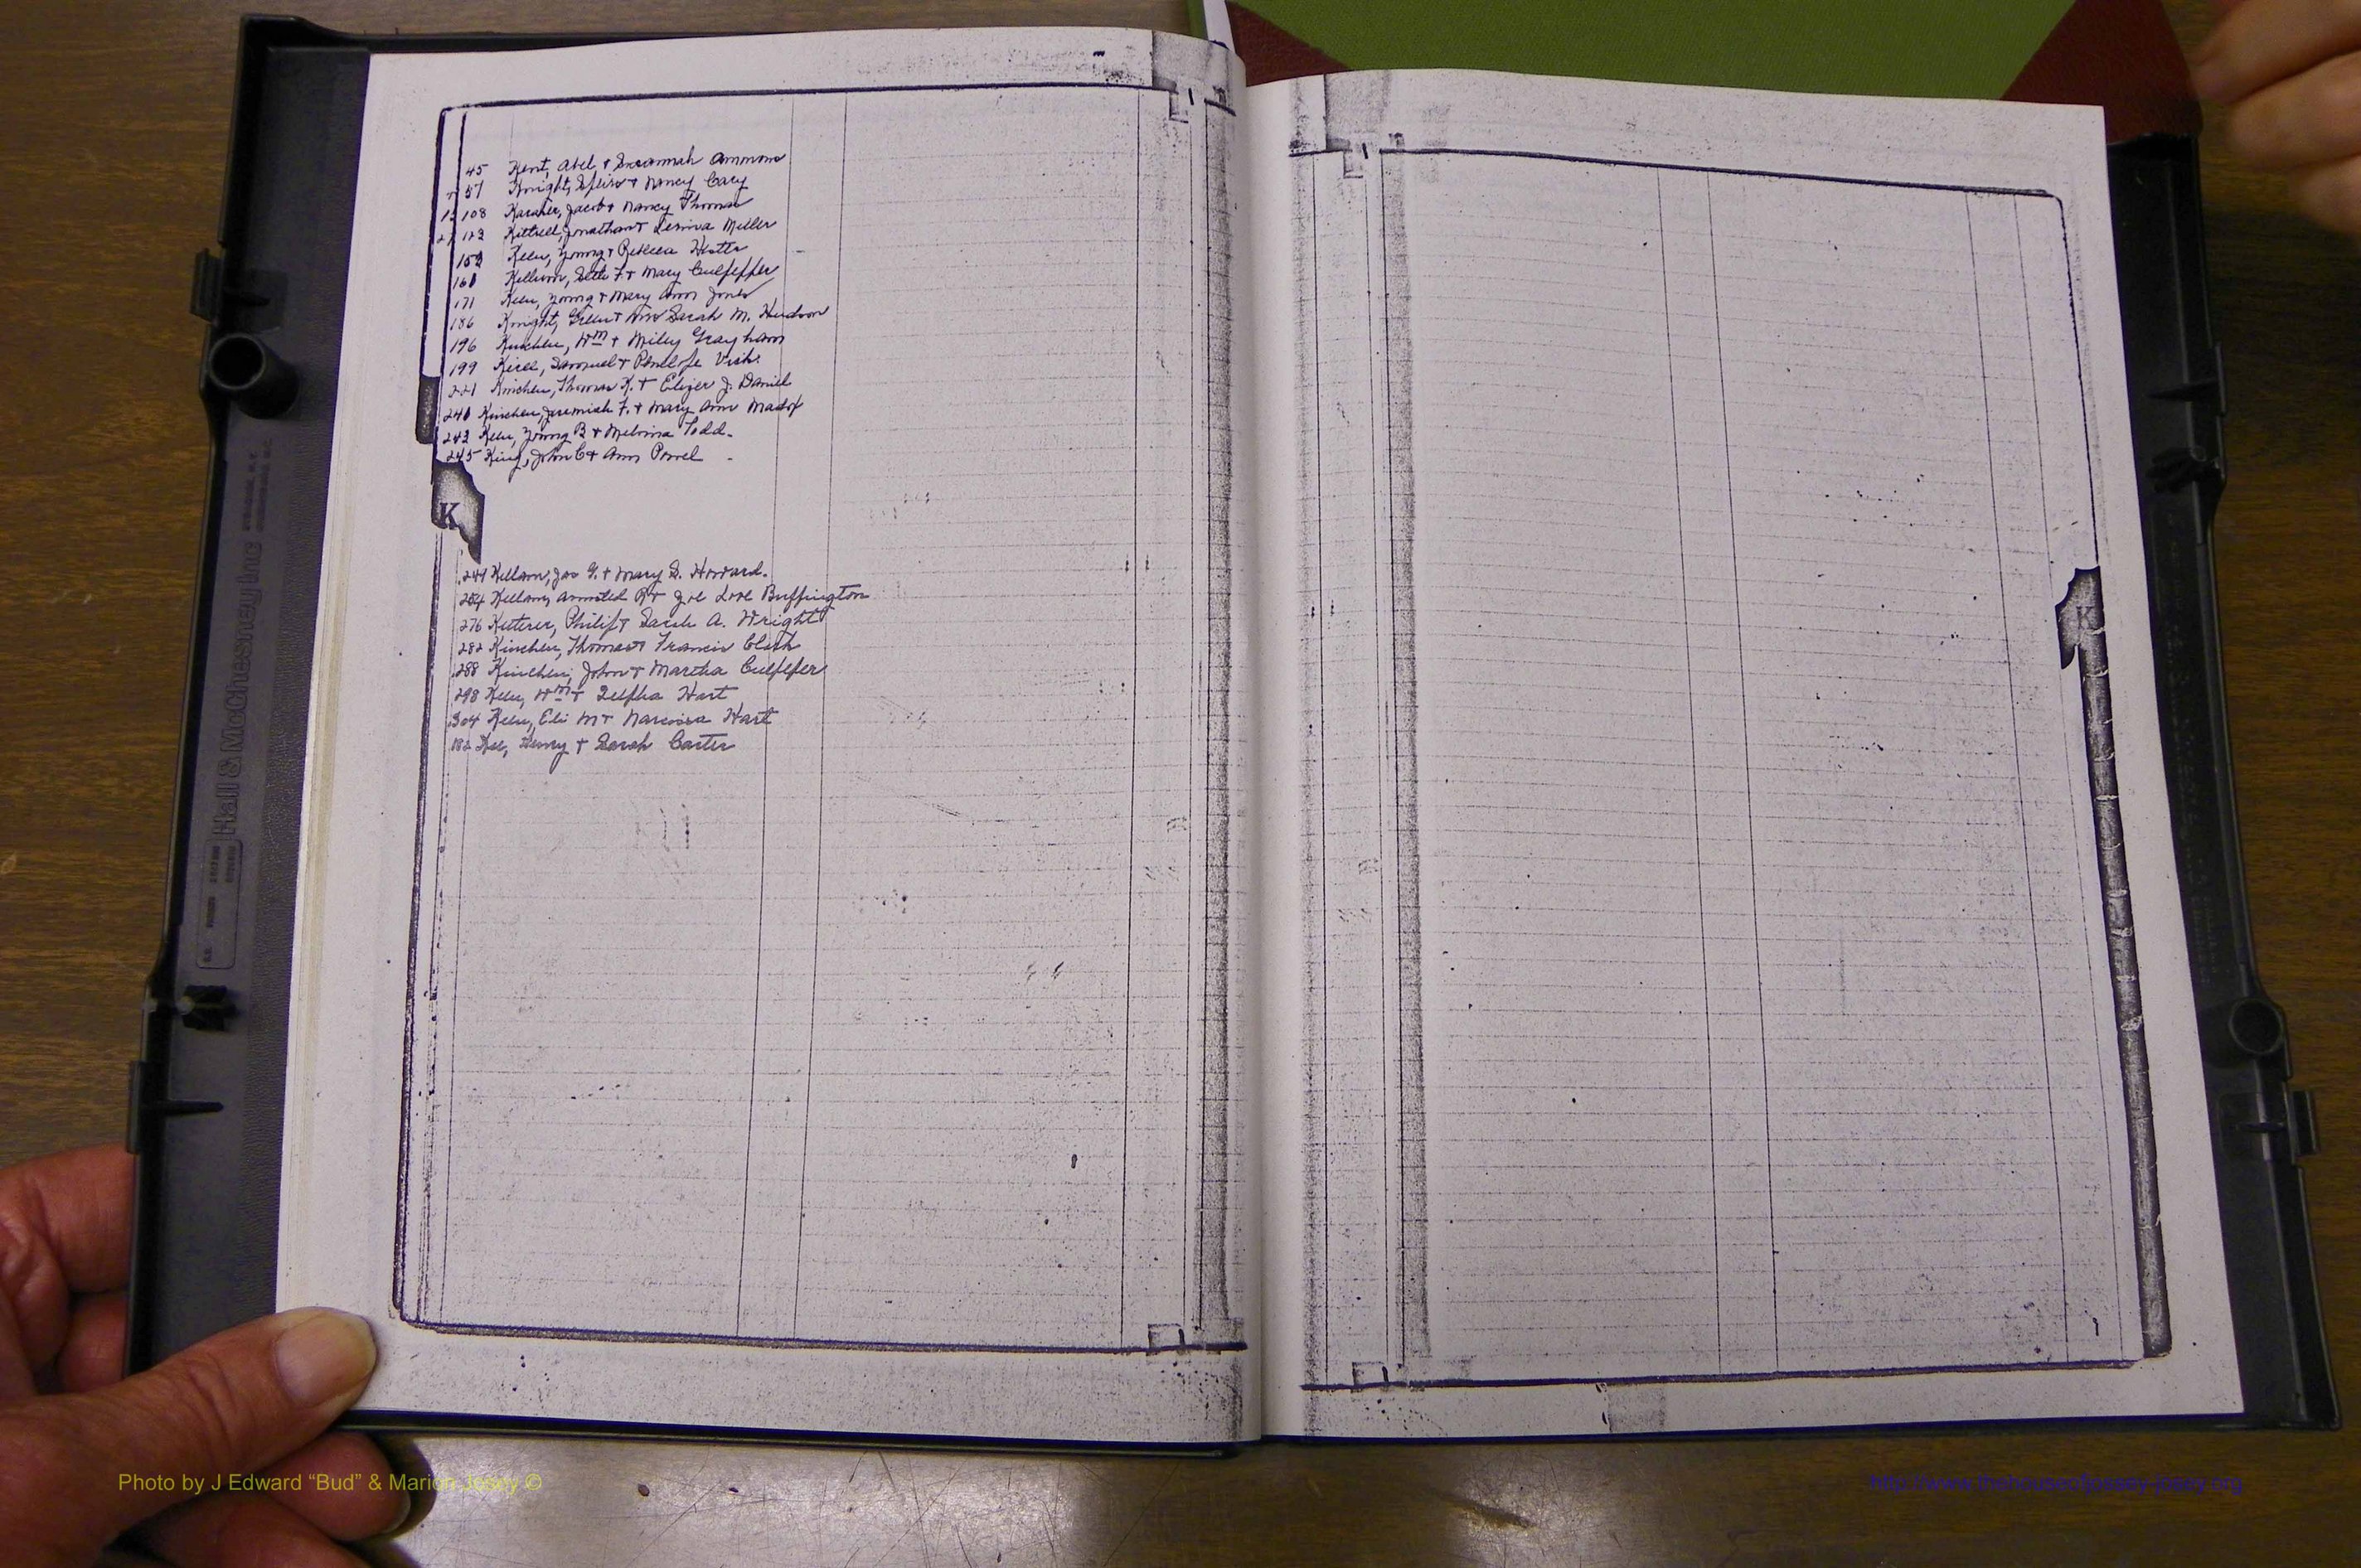 45 Kent, Abel + Susannah Ammons
57 Knight, + Nancy Cary
108 Karaker, Jacob + Nancy Thomas
123 Kittrell, Jonathan + Miller
Keen, Young + Rebecca
160 Kellum, Seth F. + Mary Culpepper
171 Keen, Young + Mary Ann Jones
186 Knight, Green + Sarah M. Hudson
196 Kinchen, Wm + Miley Grayham
199 Samuel + Penelope
221 Kinchen, Thomas K. + Elizer J. Daniel
240 Kinchen, Jeremiah F. + Mary Ann
242 Keen, Young B + Melvina Todd.
245 King, John C + Ann Powel
K
Kellam, Jas G. + Mary E. Howard.
Kellam, R + Love Buffington
276 Ketterer, Philip + Sarah A. Wright
282 Kinchen, Thomas + Francis
288 Kinchen, John + Martha Culpeper
298 Keen, Wm + Zelpha Hart
304 Keen, Eli M + Narcissa Hart
182 Henry + Sarah Carter
K
Hall & McChesney, Inc
Photo by J Edward “Bud” & Marion Josey ©
http://www.thehouseofjossey-josey.org